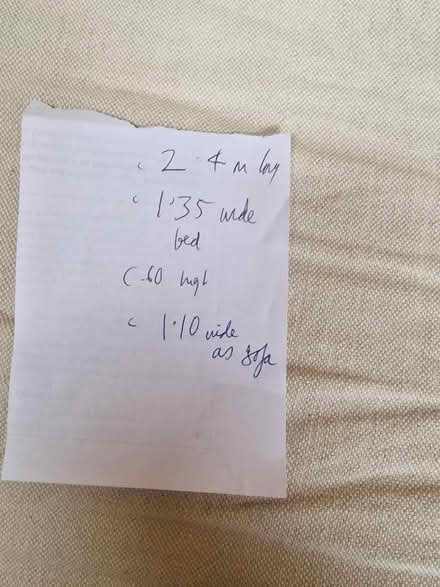 c 2.4 m long
c 1.35 wide
bed
c .60 high
c 1.10 wide
as sofa